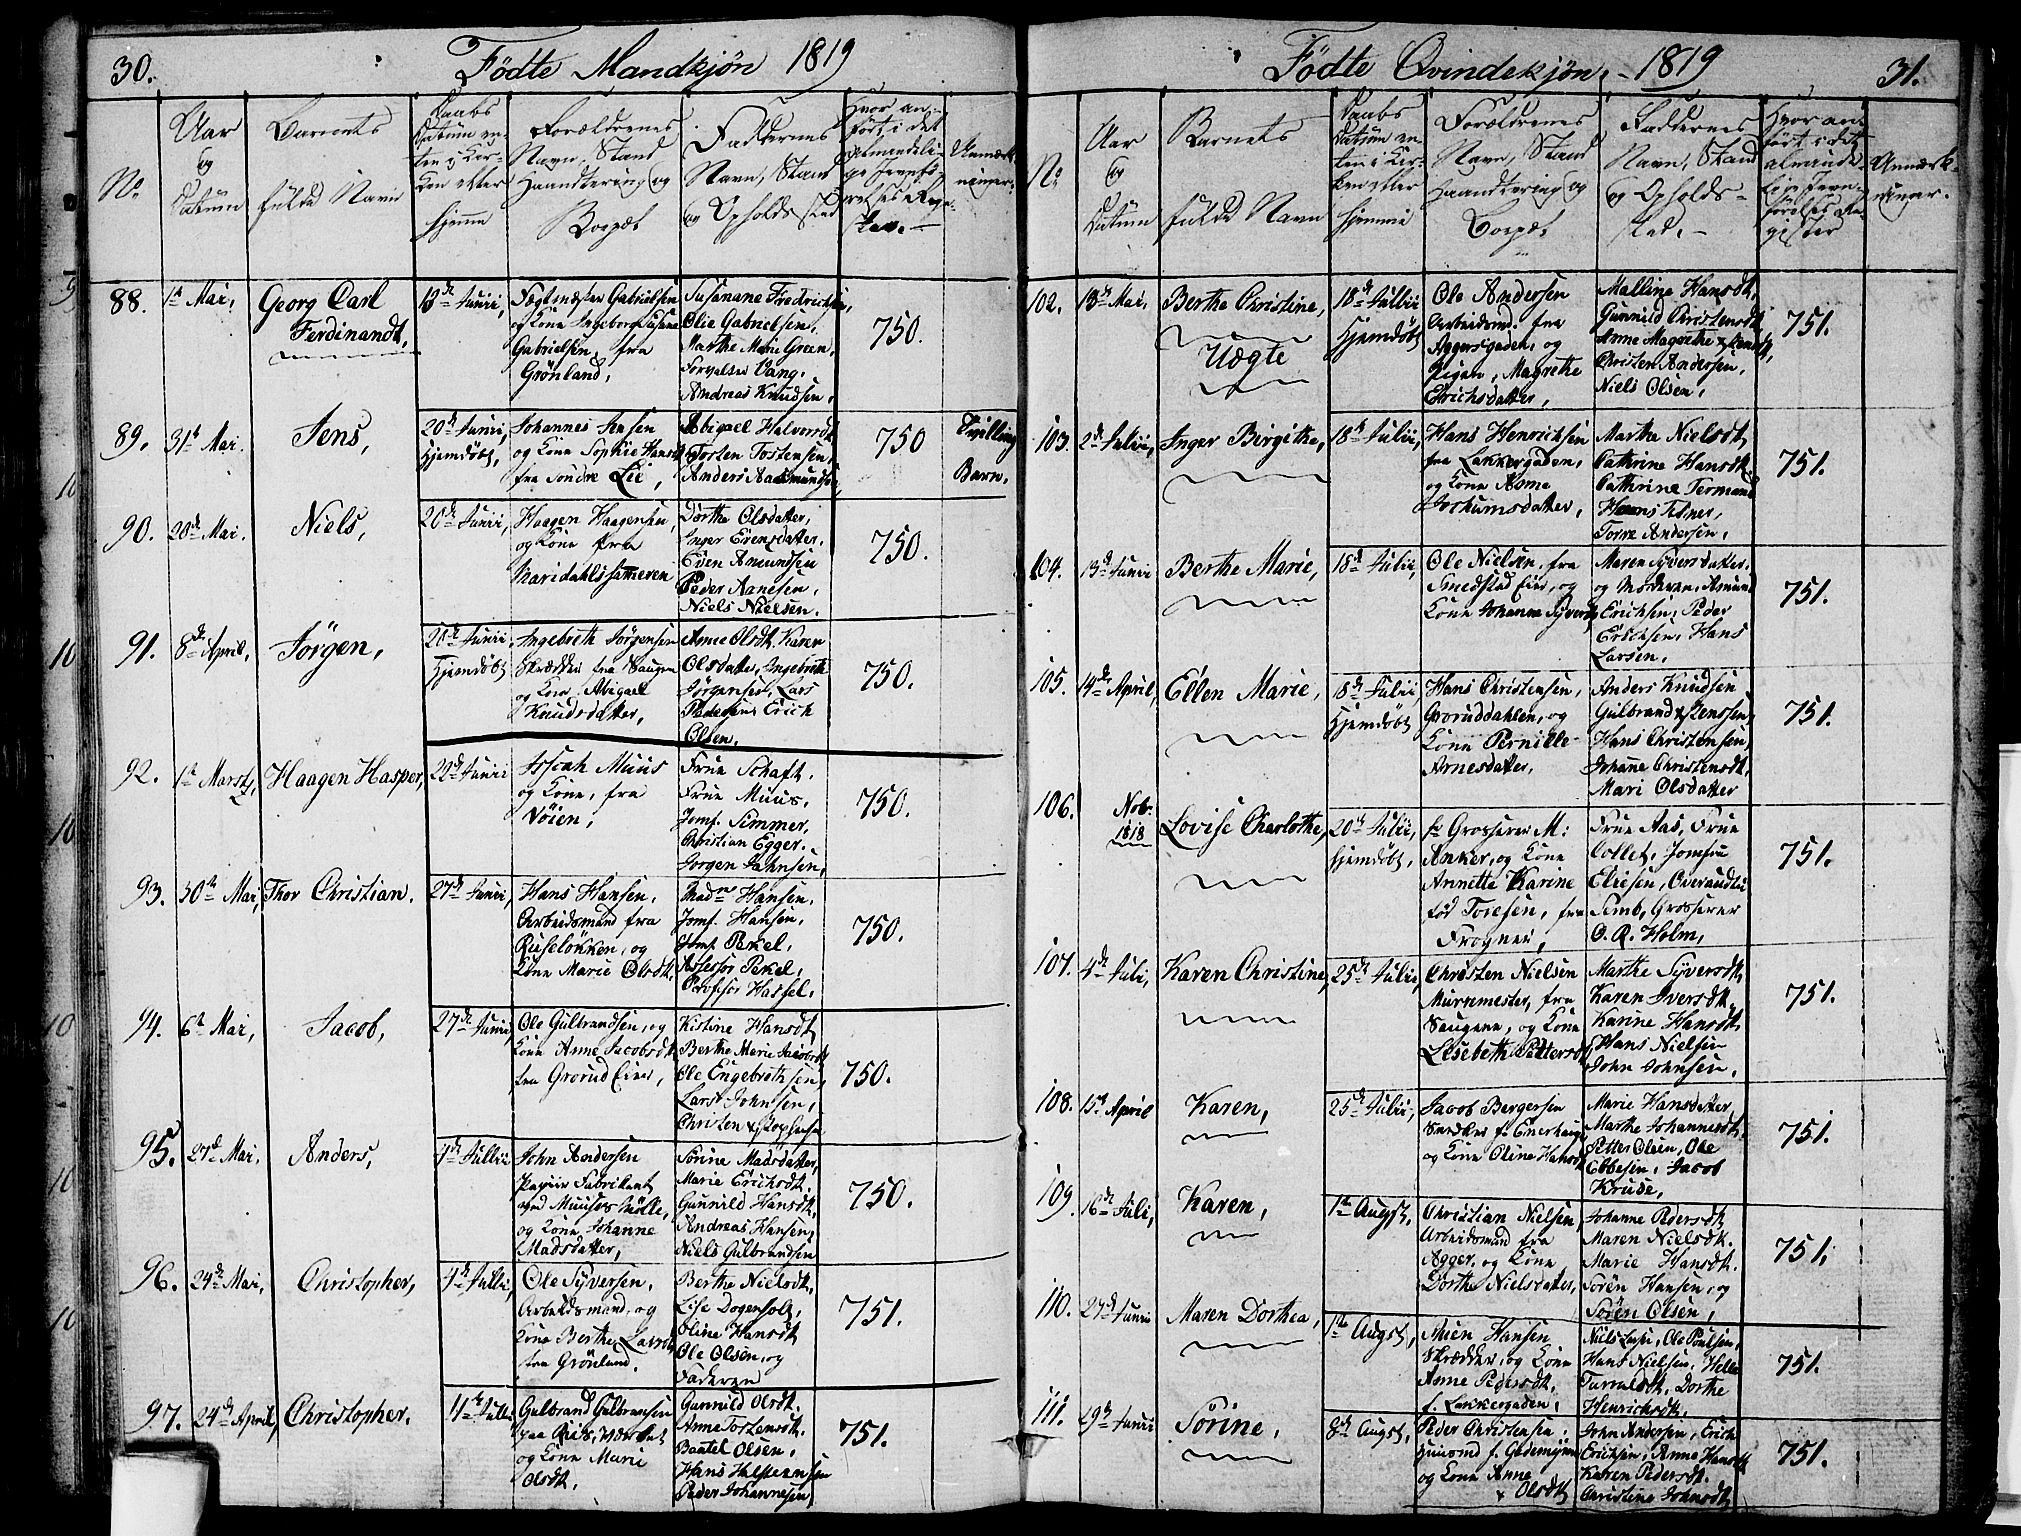 30.
Födte Mandkjön 1819
No
Aar
og
Datum
Barnets
fulde Navn
Daabs
Datum en-
ten i Kir-
ken eller
hjemme
Forældrenes
Navn, Stand
Haandtering og
Bopæl
Faddernes
Navn, Stand
og Opholds sted
Hvor an-
ført i det
almindeli-
ge Jevnfö-
relses Regi-
ster.
Anmærk-
ninger
88.
1te Mai,
Georg Carl
Ferdinandt,
13de Junii,
Gabrielsen
og Kone Ingeborg Susane
Gabrielsen, fra
Grönland,
Susanane Fredrichsen,
Olie Gabrielsen,
Marthe Marie Green,
Forvalter Vang,
Andreas Knudsen,
750.
89.
31te Mai.
Jens,
20de Junii,
Hjemdöbt,
Johannes Jensen
og Kone Sophie Hansd
fra söndre Lie,
Abigael Halvorsdt
Torsten Tostensen,
Anders Aasmundsen,
750
Tvilling
Barn.
90.
28de Mai.
Niels,
20de Junii,
Haagen Haagensen,
og Kone fra
Maridahlshameren
Dorthe Olsdatter,
Inger Evensdatter,
Even Amundsen
Peder Aanesen,
Niels Nielsen.
750.
91.
8de April,
Jörgen,
20de Junii,
Hjemdöbt
Ingebreth Jörgensen
Skrædder fra Saugene
og Kone Abigael
Knudsdatter,
Anne Olsdt. Karen
Olsdatter, Ingebreth
Jörgensen, Lars
Pedersen, Erich
Olsen.
750.
92.
1te Marts,
Haagen Hasper,
20de Junii
Josiah Muus
og Kone, fra
Vöien,
Frue Schaft.
Frue Muus,
Jomf. Simmer,
Christian Egger.
Jorgen Jahnsen,
750.
93.
30te Mai,
Thor Christian.
27de Junii,
Hans Hansen,
Arbeidsmand fra
Ruselökken, og
Kone Marie Olsdt.
Madme Hansen,
Jomf. Hansen,
Jomf. Pekel,
Assessor Pekel,
Profesor Hassel,
750.
94.
6te Mai,
Jacob,
27de Junii,
Ole Gulbrandsen, og
Kone Anne Jacobsdt
fra Grorud Eier,
Kistine Hansdt
Berthe Marie Jacobsdt
Ole Engebrethsen,
Lars Johnsen,
Christen Christophersen
750.
95.
27de Mai,
Anders,
4de Jullii,
John Andersen
Papiir Fabrikant
ved Muuses Mölle,
og Kone Johanne
Madsdatter,
Sörine Madsdatter,
Marie Erichsdt.
Gunnild Hansdt.
Andreas Hansen,
Niels Gulbrandsen
750.
96.
24de Mai,
Christopher,
4de Jullii,
Ole Syversen,
Arbeidsmand, og
Kone Berthe Larsdt
fra Grönland.
Berthe Nielsdt.
Lise Dogenholz
Oline Hansdt
Ole Olsen, og
Faderen
751.
97.
24de April,
Christopher.
11te Julli
Gulbrand Gulbransen
paa Riis,
og Kone Marie
Olsdt.
Gunnild Olsdt.
Anne Torstensdt.
Baatel Olsen,
Hans Halsteensen
Peder Johannesen
751.
Födte Qvindekjön. - 1819
31.
No
Aar
og
Datum
Barnets
fulde Navn
Daabs
Datum en-
ten i Kir-
ken eller
hjemme
Forældrenes
Navn, Stand
Haandtering og
Bopæl
Faddernes
Navn, Stand
og Opholds-
sted. -
Hvor an-
fört i det
alminde-
lige Jevn-
förelses Re-
gister
Anmærk-
ninger.
102.
18de Mai.
Berthe Christine,
Uægte
18de Jullii
Hjemdöbt
Ole Andersen
Arbeidsmd. fra
Aggersgaden, og
Pigen, Magrethe
Erichsdatter,
Malline Hansdt,
Gunnild Christensdt,
Anne Magrethe Jensdt,
Christen Andersen,
Niels Olsen,
751.
103.
2de Julii,
Inger Birgithe,
18de Julii,
Hans Henrichsen
fra Lakkergaden,
og Kone Anne
Jochumsdatter,
Marthe Nielsdt,
Cathrine Hansdt.
Cathrine Termand
Hans Tilner,
Torre Andersen,
751.
104.
13de Junii
Berthe Marie,
18de Julii,
Ole Nielsen, fra
Smedstad Eier, og
Kone Johanne Syversd
Maren Syversdatter,
og Moderen, Asmund
Erichsen, Peder
Erichsen, Hans
Larsen,
751.
105.
14de April,
Ellen Marie,
18de Julii,
Hjemdöbt
Hans Christensen,
Groruddahlen, og
Kone Pernille
Arnesdatter,
Anders Knudsen
Gulbrand Jenssen,
Hans Christensen,
Johane Christensdt,
Mari Olsdatter
751.
106.
Nob.
1818
Lovise Charlothe,
20de Julii,
hjemdöbt,
Hr Grosserer M:
Anker, og Kone
Annette Karine
föd Toresen, fra
Frogner,
Frue Aas, Frue
Collet, Jomfru
Eliesen,
Grosserer
O. R. Holm,
751.
107.
4de Juli,
Karen Christine,
25de Julii,
Christen Nielsen
Murmester, fra
Saugene, og Kone
Lisebeth Pettersd
Marthe Syversdt,
Karen Iversdt.
Karine Hansdt,
Hans Nielsen
John Johnsen,
751.
108.
15de April
Karen,
25de Julii,
Jacob Bergersen
Snedker fr Enerhaugen
og Kone Oline Hansdt
Marie Hansdatter
Marthe Johannesdt.
Petter Olsen, Ole
Ebbesen, Jacob
Kruse,
751.
109.
16de Juli,
Karen,
1te Augst,
Christian Nielsen,
Arbeidsmand fra
Agger, og Kone
Dorthe Nielsdatter,
Johanne Pedersdt
Maren Nielsdt.
Marie Hansdt.
Sorën Hansen, og
Sören Olsen,
751.
110.
27de Junii
Maren Dorthea,
1te Augst,
Hansen
Skrædder, og Kone
Anne Pedersdt.
f. Lakkergaden,
Niels Ole Poulsen,
Hans Nielsen, Helle
Dorthe
Henrichsdt.
751.
111.
19de Junii
Sörine,
8de Augst,
Peder Christensen,
Huusmd f.
og Kone Anne
Olsdt,
John Andersen, Erich
Erichsen, Anne Hansdt
Karen Pedersdt.
Christine Johnsdt,
751.